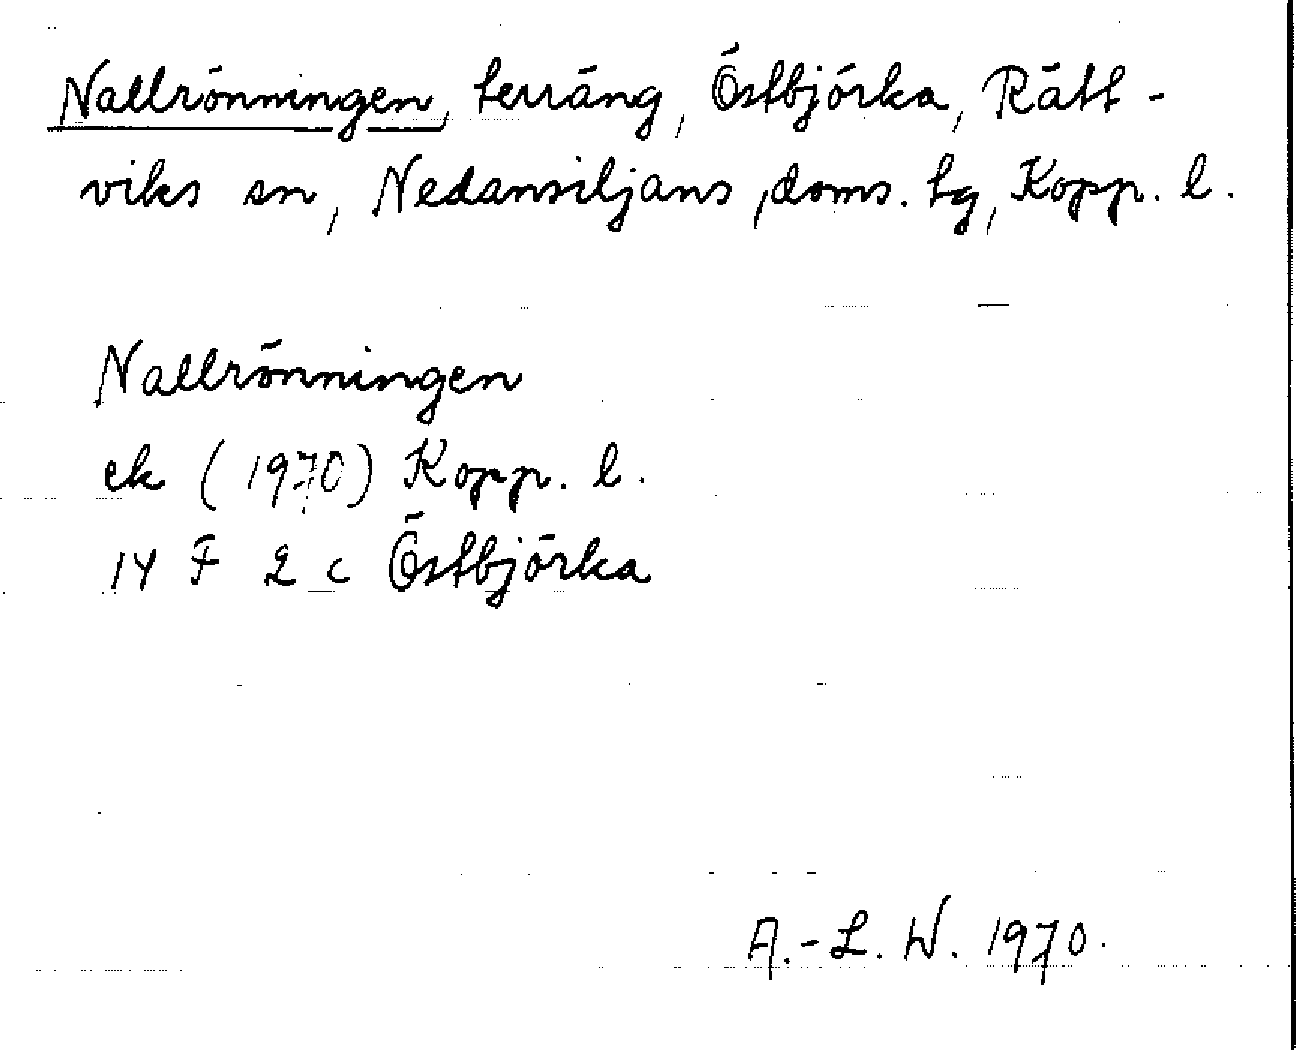 Nallrönningen, terräng, Östbjörka, Rätt-
viks sn, Nedansiljans doms. tg, Kopp. l.
Nallrönningen
ek (1970) Kopp. l.
14 F 2 c Östbjörka
A.-L. W. 1970.